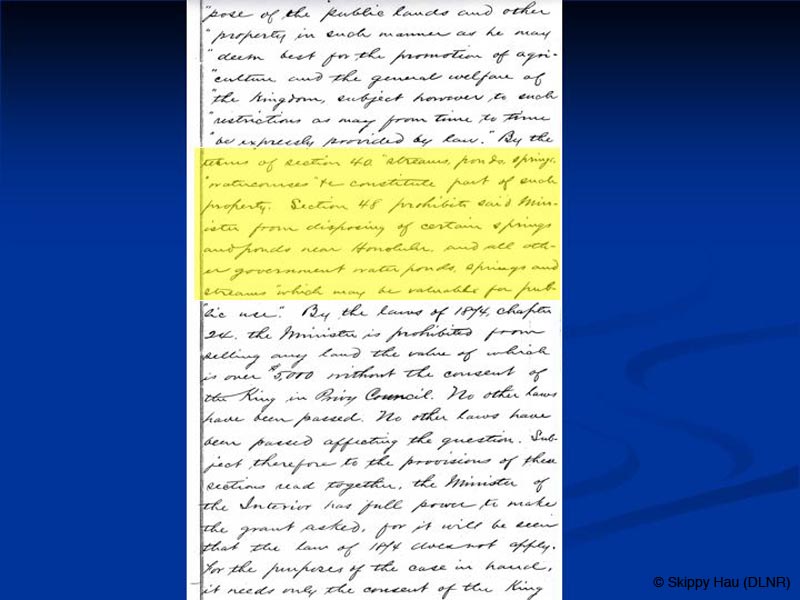 "pose of the public lands and other
"property in such manner as he may
"deem best for the promotion of agri-
"culture and the general welfare of
"the Kingdom, subject however to such
"restrictions as may from time to time
"be expressly provided by law." By the
terms of section 40 "streams, ponds, springs,
"watercourses" &c constitute part of such
property. Section 48 prohibits said Min-
ister from disposing of certain springs
and ponds near Honolulu, and all oth-
er government water ponds, springs and
streams "which may be valuable for pub-
"lic use". By the laws of 1874, chapter
24, the Minister is prohibited from
selling any land the value of which
is over $5,000 without the consent of
the King in Privy Council. No other laws
have been passed. No other laws have
been passed affecting the question. Sub-
ject therefore to the provisions of these
sections read together, the Minister of
the Interior has full power to make
the grant asked, for it will be seen
that the law of 1874 does not apply.
For the purposes of the case in hand,
it needs only the consent of the King
© Skippy Hau (DLNR)